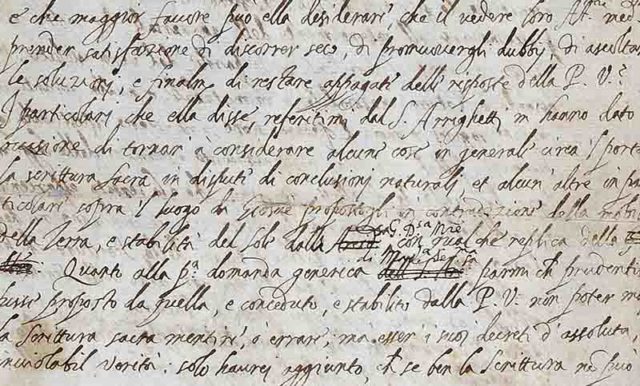 e che maggior favore puo ella desiderare che il vedere loro Alt.
prender satisfazione di discorrer seco, di promuovergli dubbij, di ascoltar
le soluzioni, e finalm. di restare appagate delle risposte della P. V.
I particolari che ella disse referitimi dal S. Arrighetti m hanno dato
occasione di tornare à considerare alcune cose in generale circa 'l portar
la scrittura sacra in dispute di conclusioni naturali, et alcun'altre in par
ticolari sopra 'l luogo di Giosue propostogli in contradizione della mo
della Terra, e stabilità del Sole dalla G. D.sa Mre con qualche replica della
Quanto alla p.a domanda generica di parmi ch prudenti
fusse proposto da quella, e conceduto, e stabilito dalla P. V. non poter m
la Scrittura sacra mentire, o errare, ma esser i suoi decreti d'assoluta,
inviolabil verità: solo haurei aggiunto, ch se ben la Scrittura no puo